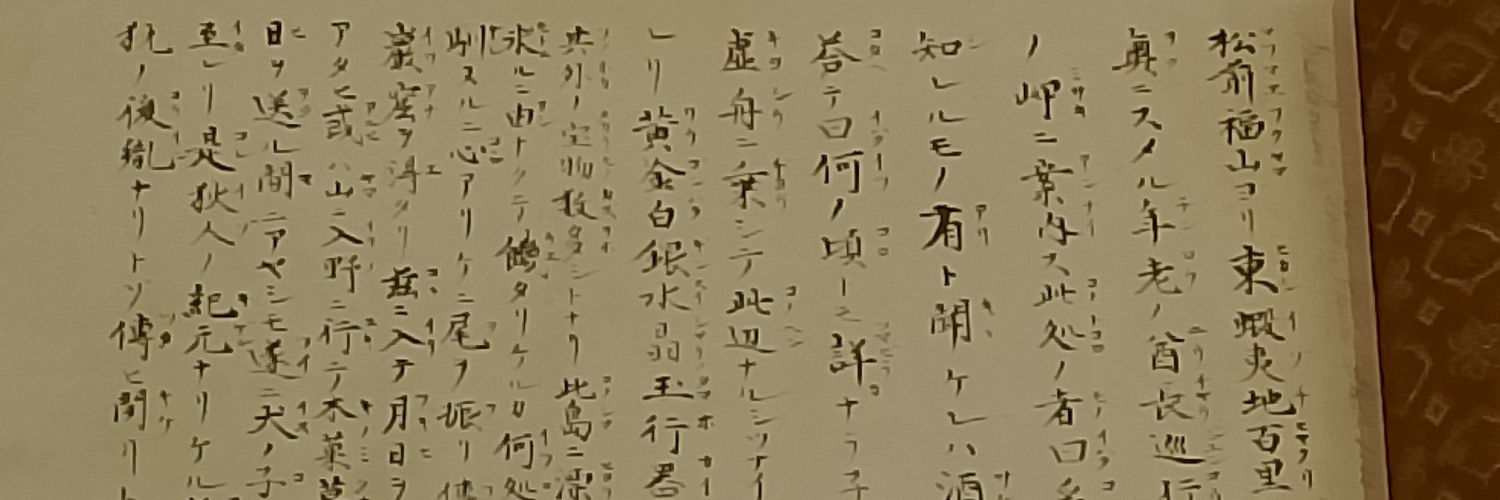 松前福山ヨリ東蝦夷地百里
奥ニスメル年老ノ酋長巡行
ノ岬ニ案内ス此処ノ者曰
知レルモノ有ト聞ケレハ酒
答テ曰何ノ頃ニ詳ナラ子
虚舟ニ乗シテ此辺ナルシツナイ
レリ黄金白銀水晶玉行器
其外ノ宝物数タシトナリ此島ニ漂
求ルニ由ナクテ饑タリケル何処
馴スルニ心アリケニ尾ヲ振リ
巌窟ヲ得タリ茲ニ入テ月日ヲ
アタヒ或ハ山ニ入野ニ行テ木菓
日ヲ送ル間ニアヤシモ遂ニ犬ノ子
至レリ是狄人ノ紀元ナリケル
ノ後胤ナリトソ傳ヒ聞リト